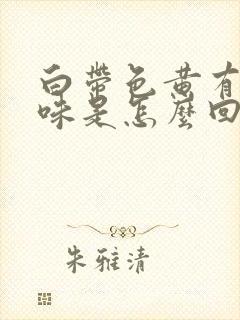 白带色黄有
味是怎麼回
朱雅清